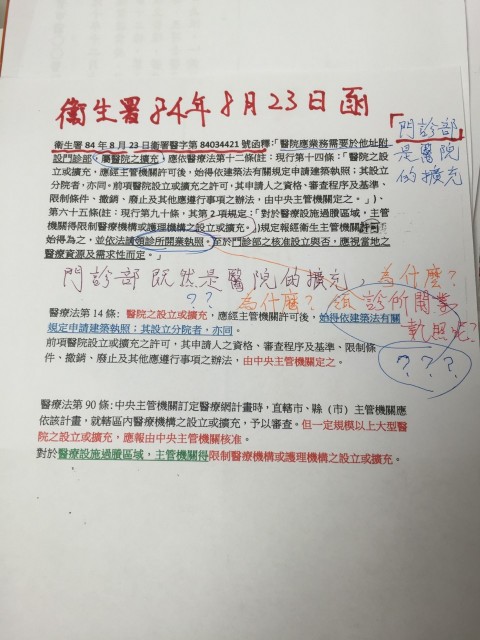 衛生署84年8月23日函
「門診部
是醫院
的擴充
衛生署 84 年 8 月 23 日衛署醫字第 84034421 號函釋:「醫院應業務需要於他址附
設門診部,屬醫院之擴充,應依醫療法第十二條(註:現行第十四條:「醫院之設
立或擴充,應經主管機關許可後,始得依建築法有關規定申請建築執照;其設立
分院者,亦同。前項醫院設立或擴充之許可,其申請人之資格、審查程序及基準、
限制條件、撤銷、廢止及其他應遵行事項之辦法,由中央主管機關定之。」)
第六十五條(註:現行第九十條,其第2項規定:「對於醫療設施過賸區域,主管
機關得限制醫療機構或護理機構之設立或擴充。」)規定報經衛生主管機關許可
始得為之,並依法請領診所開業執照。至於門診部之核准設立與否,應視當地之
醫療資源及需求性而定。」
門診部既然是醫院的擴充,為什麼?
??為什麼?領診所開業
執照呢?
???
醫療法第 14 條: 醫院之設立或擴充,應經主管機關許可後,始得依建築法有關
規定申請建築執照;其設立分院者,亦同。
前項醫院設立或擴充之許可,其申請人之資格、審查程序及基準、限制條
件、撤銷、廢止及其他應遵行事項之辦法,由中央主管機關定之。
醫療法第 90 條:中央主管機關訂定醫療網計畫時,直轄市、縣 (市) 主管機關應
依該計畫,就轄區內醫療機構之設立或擴充,予以審查。但一定規模以上大型醫
院之設立或擴充,應報由中央主管機關核准。
對於醫療設施過賸區域,主管機關得限制醫療機構或護理機構之設立或擴充。